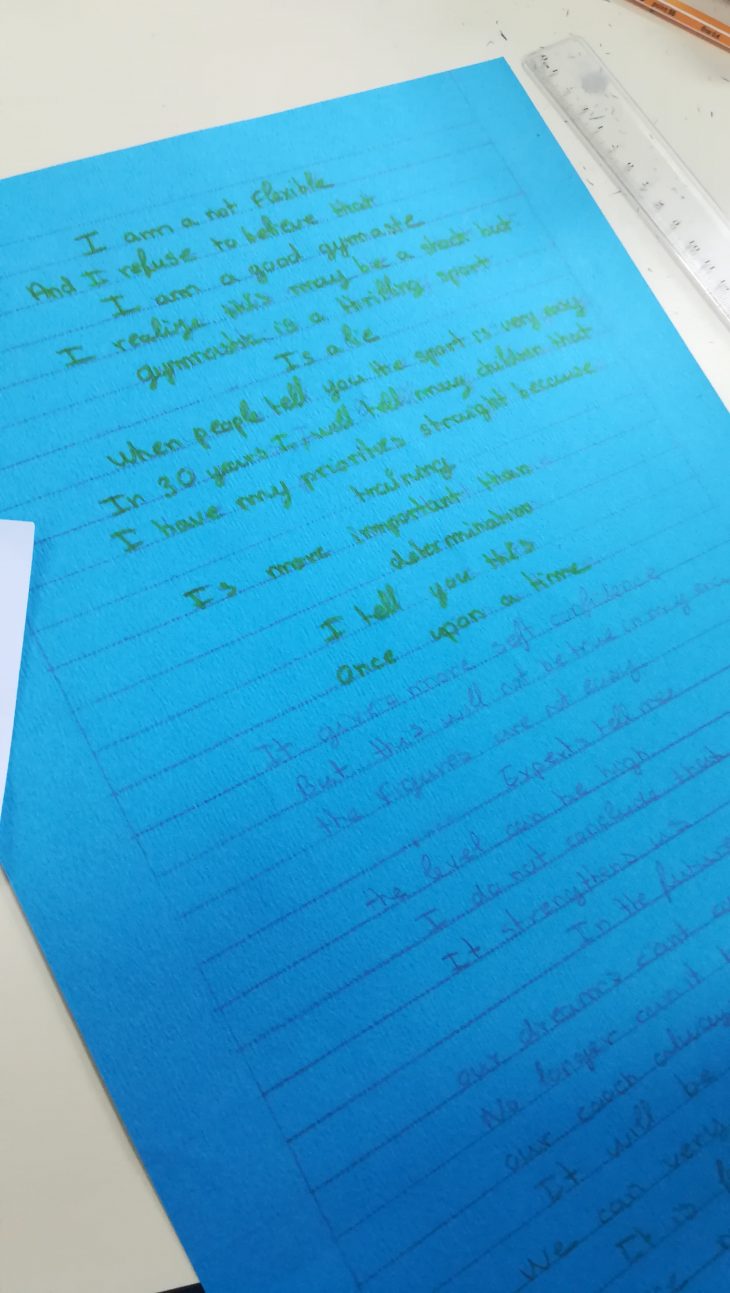 I am a not flexible
And I refuse to believe that
I am a good gymnaste
I realize this may be a shock but
gymnastic is a thrilling sport
Is a lie
When people tell you the sport is very easy
In 30 years I will tell my children that
I have my priorities straight because
training
Is more important than
determination
I tell you this
Once upon a time
It gives more self confidence
But this will not be true in my
the figures are not easy
Experts tell me
the level can be high
I do not conclude that
It strengthens us
In the future
our dreams can't
No longer can't
our coach always
It will be
We can very
It is